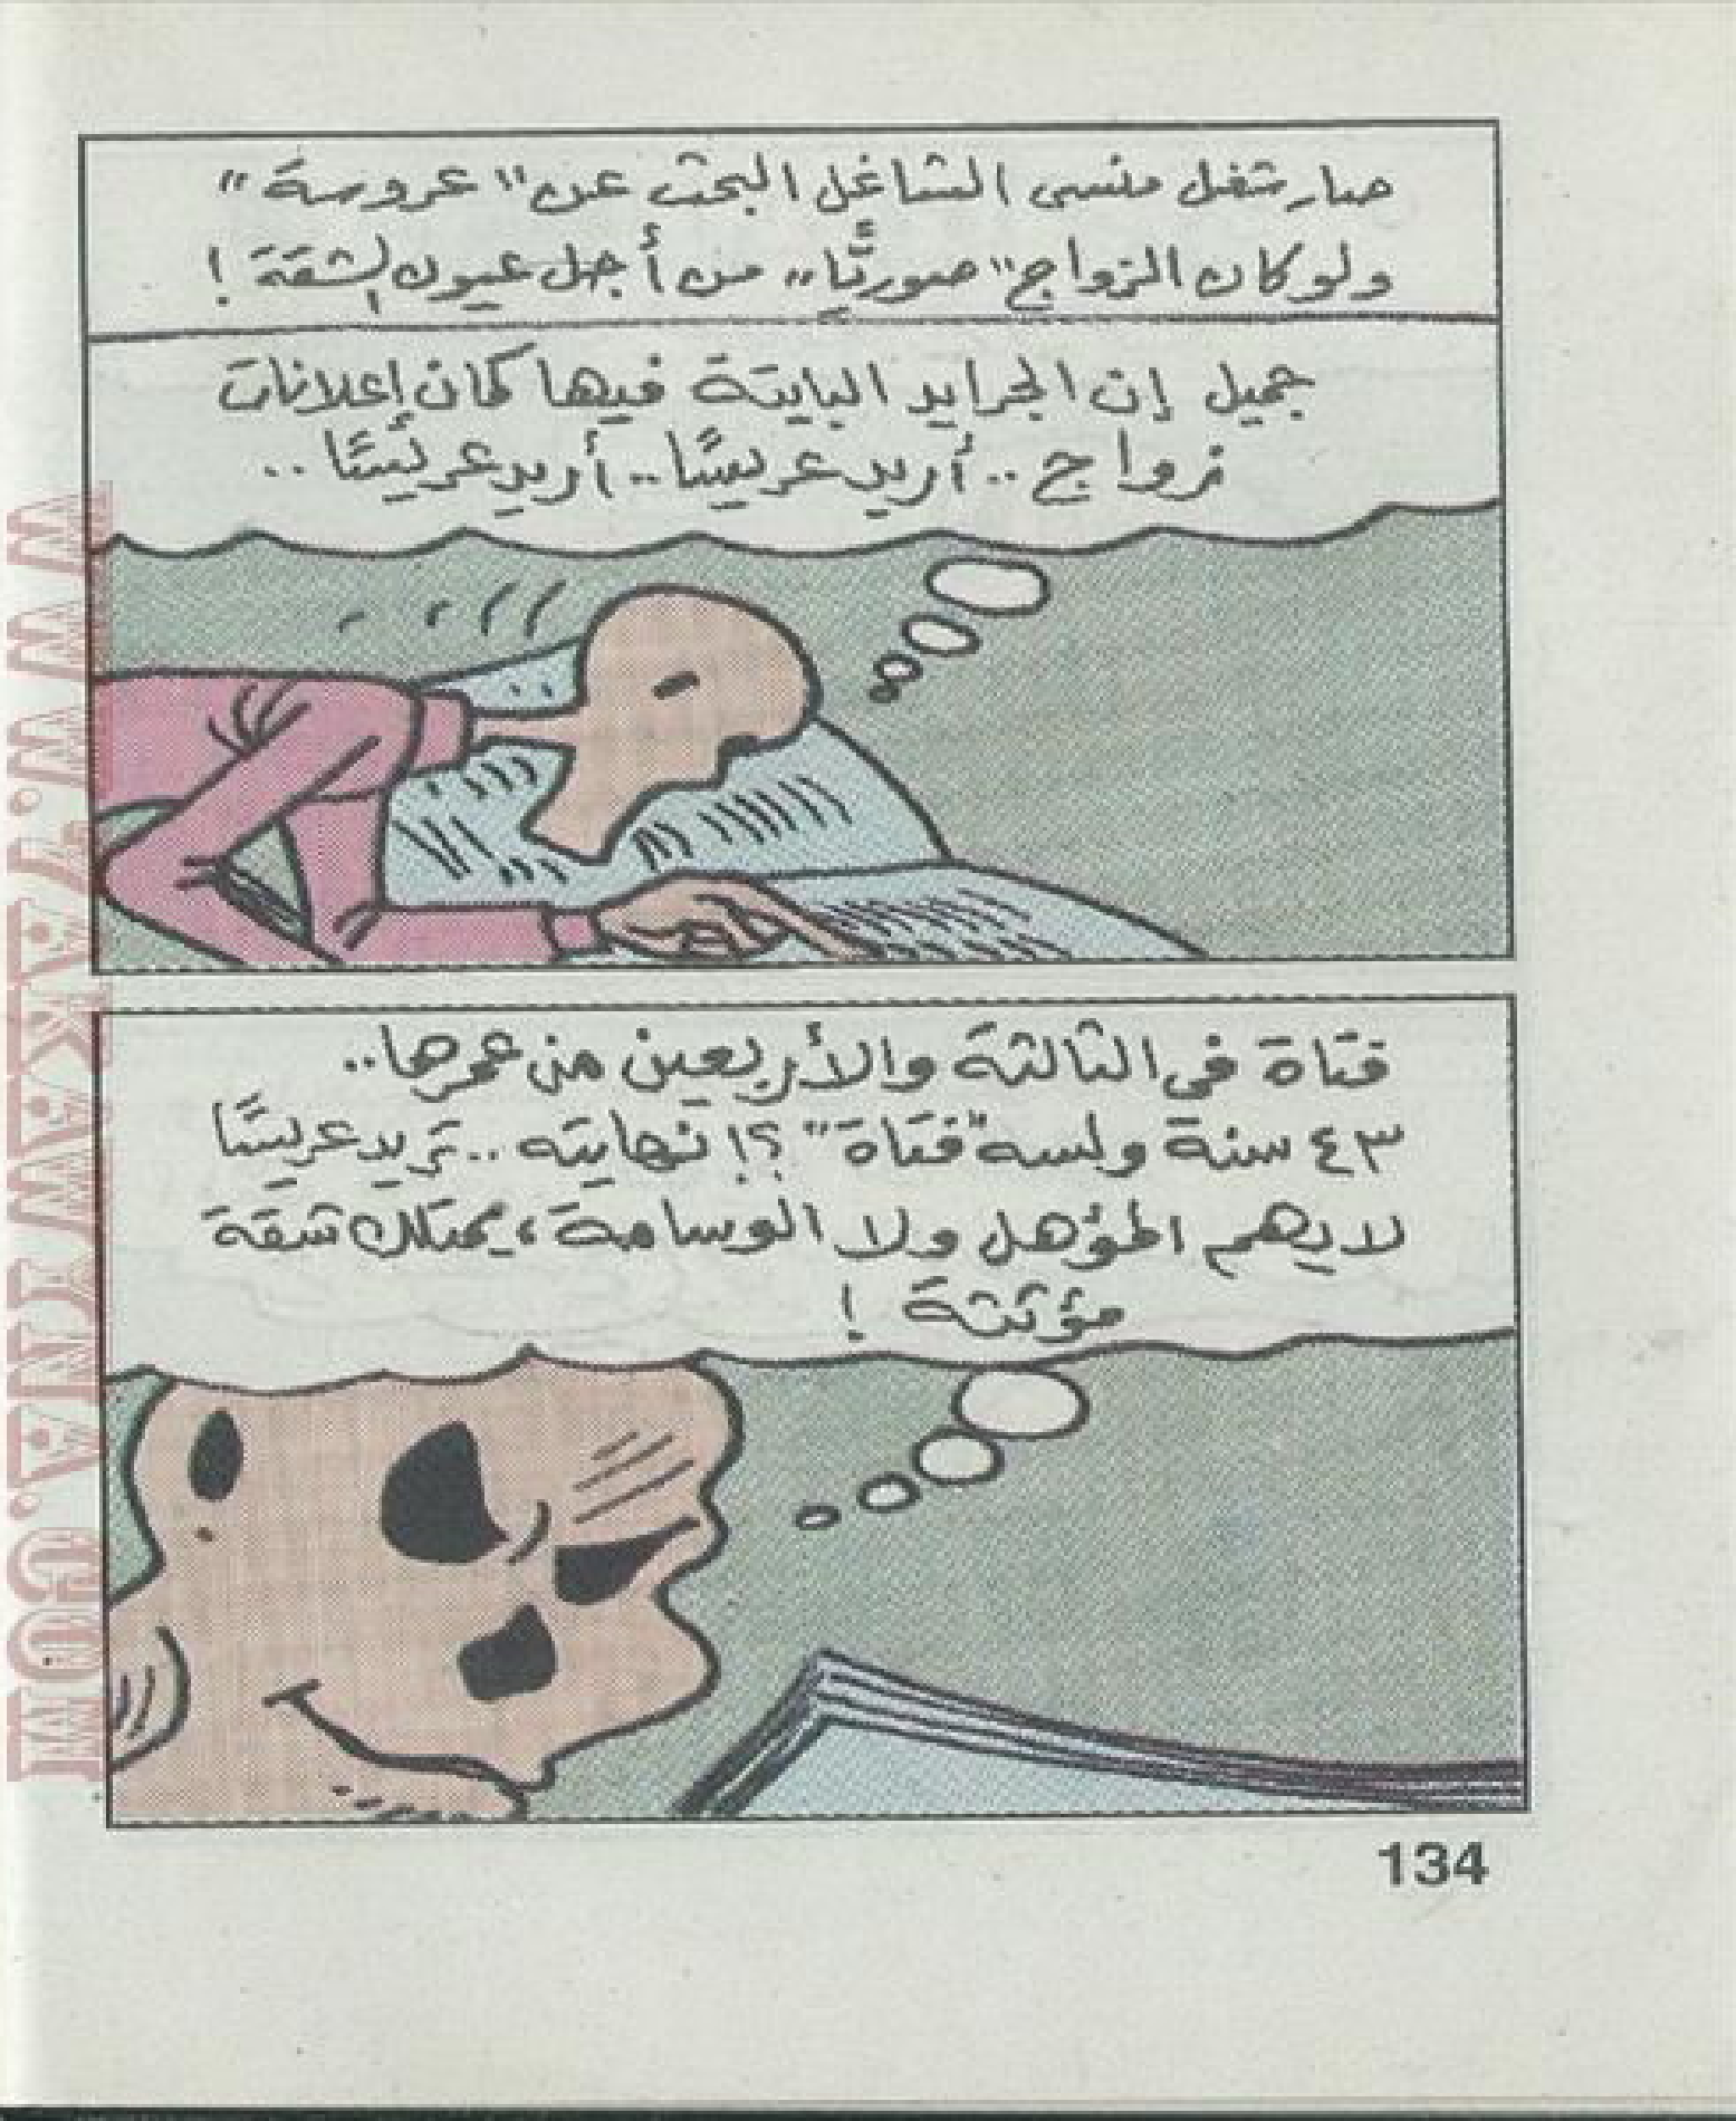 صار شغل منسى الشاغل البحث عن "عروسة"
ولو كان الزواج "صوريًّا" من أجل عيون الشقة !
جميل إن الجرايد البايتة فيها كمان إعلانات
زواج .. أريد عريسًا .. أريد عريسًا ..
فتاة فى الثالثة والأربعين من عمرها ..
٤٣ سنة ولسه "فتاة" ؟! نهايته .. تريد عريسًا
لا يهم المؤهل ولا الوسامة ، يمتلك شقة
مؤثثة !
134
WWW.TAKEWENA.COM